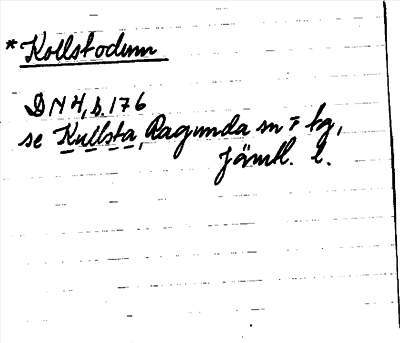 *Kollstodum
DN 4, s. 176
se Kullsta, Ragunda sn o tg,
Jämtl. l.